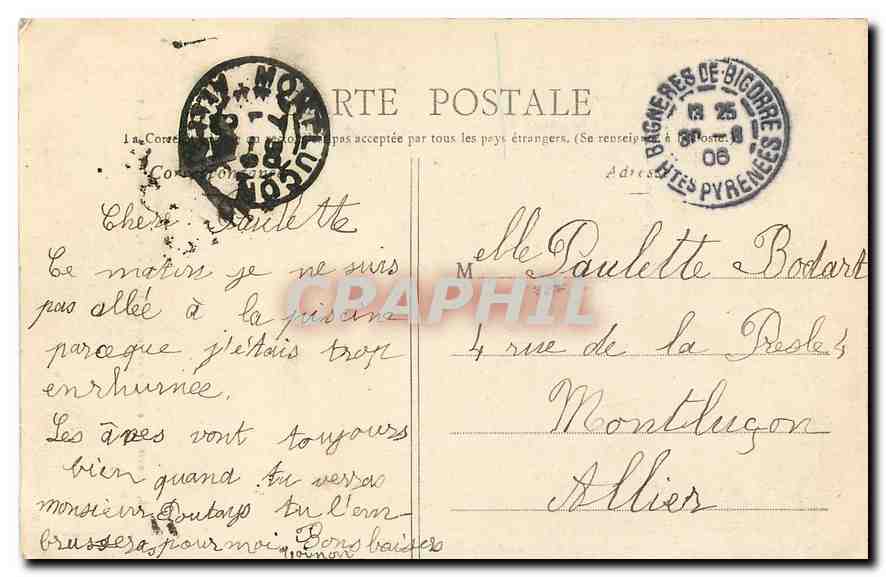 CARTE POSTALE
La Correspondance au recto n'est pas acceptée par tous les pays étrangers. (Se renseigner à la Poste.)
Correspondance
Adresse
MONTLUÇON
ALLIER
BAGNERES DE BIGORRE
18 25
30 - 8
06
HTES PYRENÉES
Chere Paulette
Ce matin je ne suis
pas allée à la
parceque j'etais trop
enrhumée.
Les ânes vont toujours
bien quand tu verras
monsieur Poutays tu l'em-
brassera pour moi Bons baisers
Melle Paulette Bodart
4 rue de la Presle 4
Montluçon
Allier
CPAPHIL